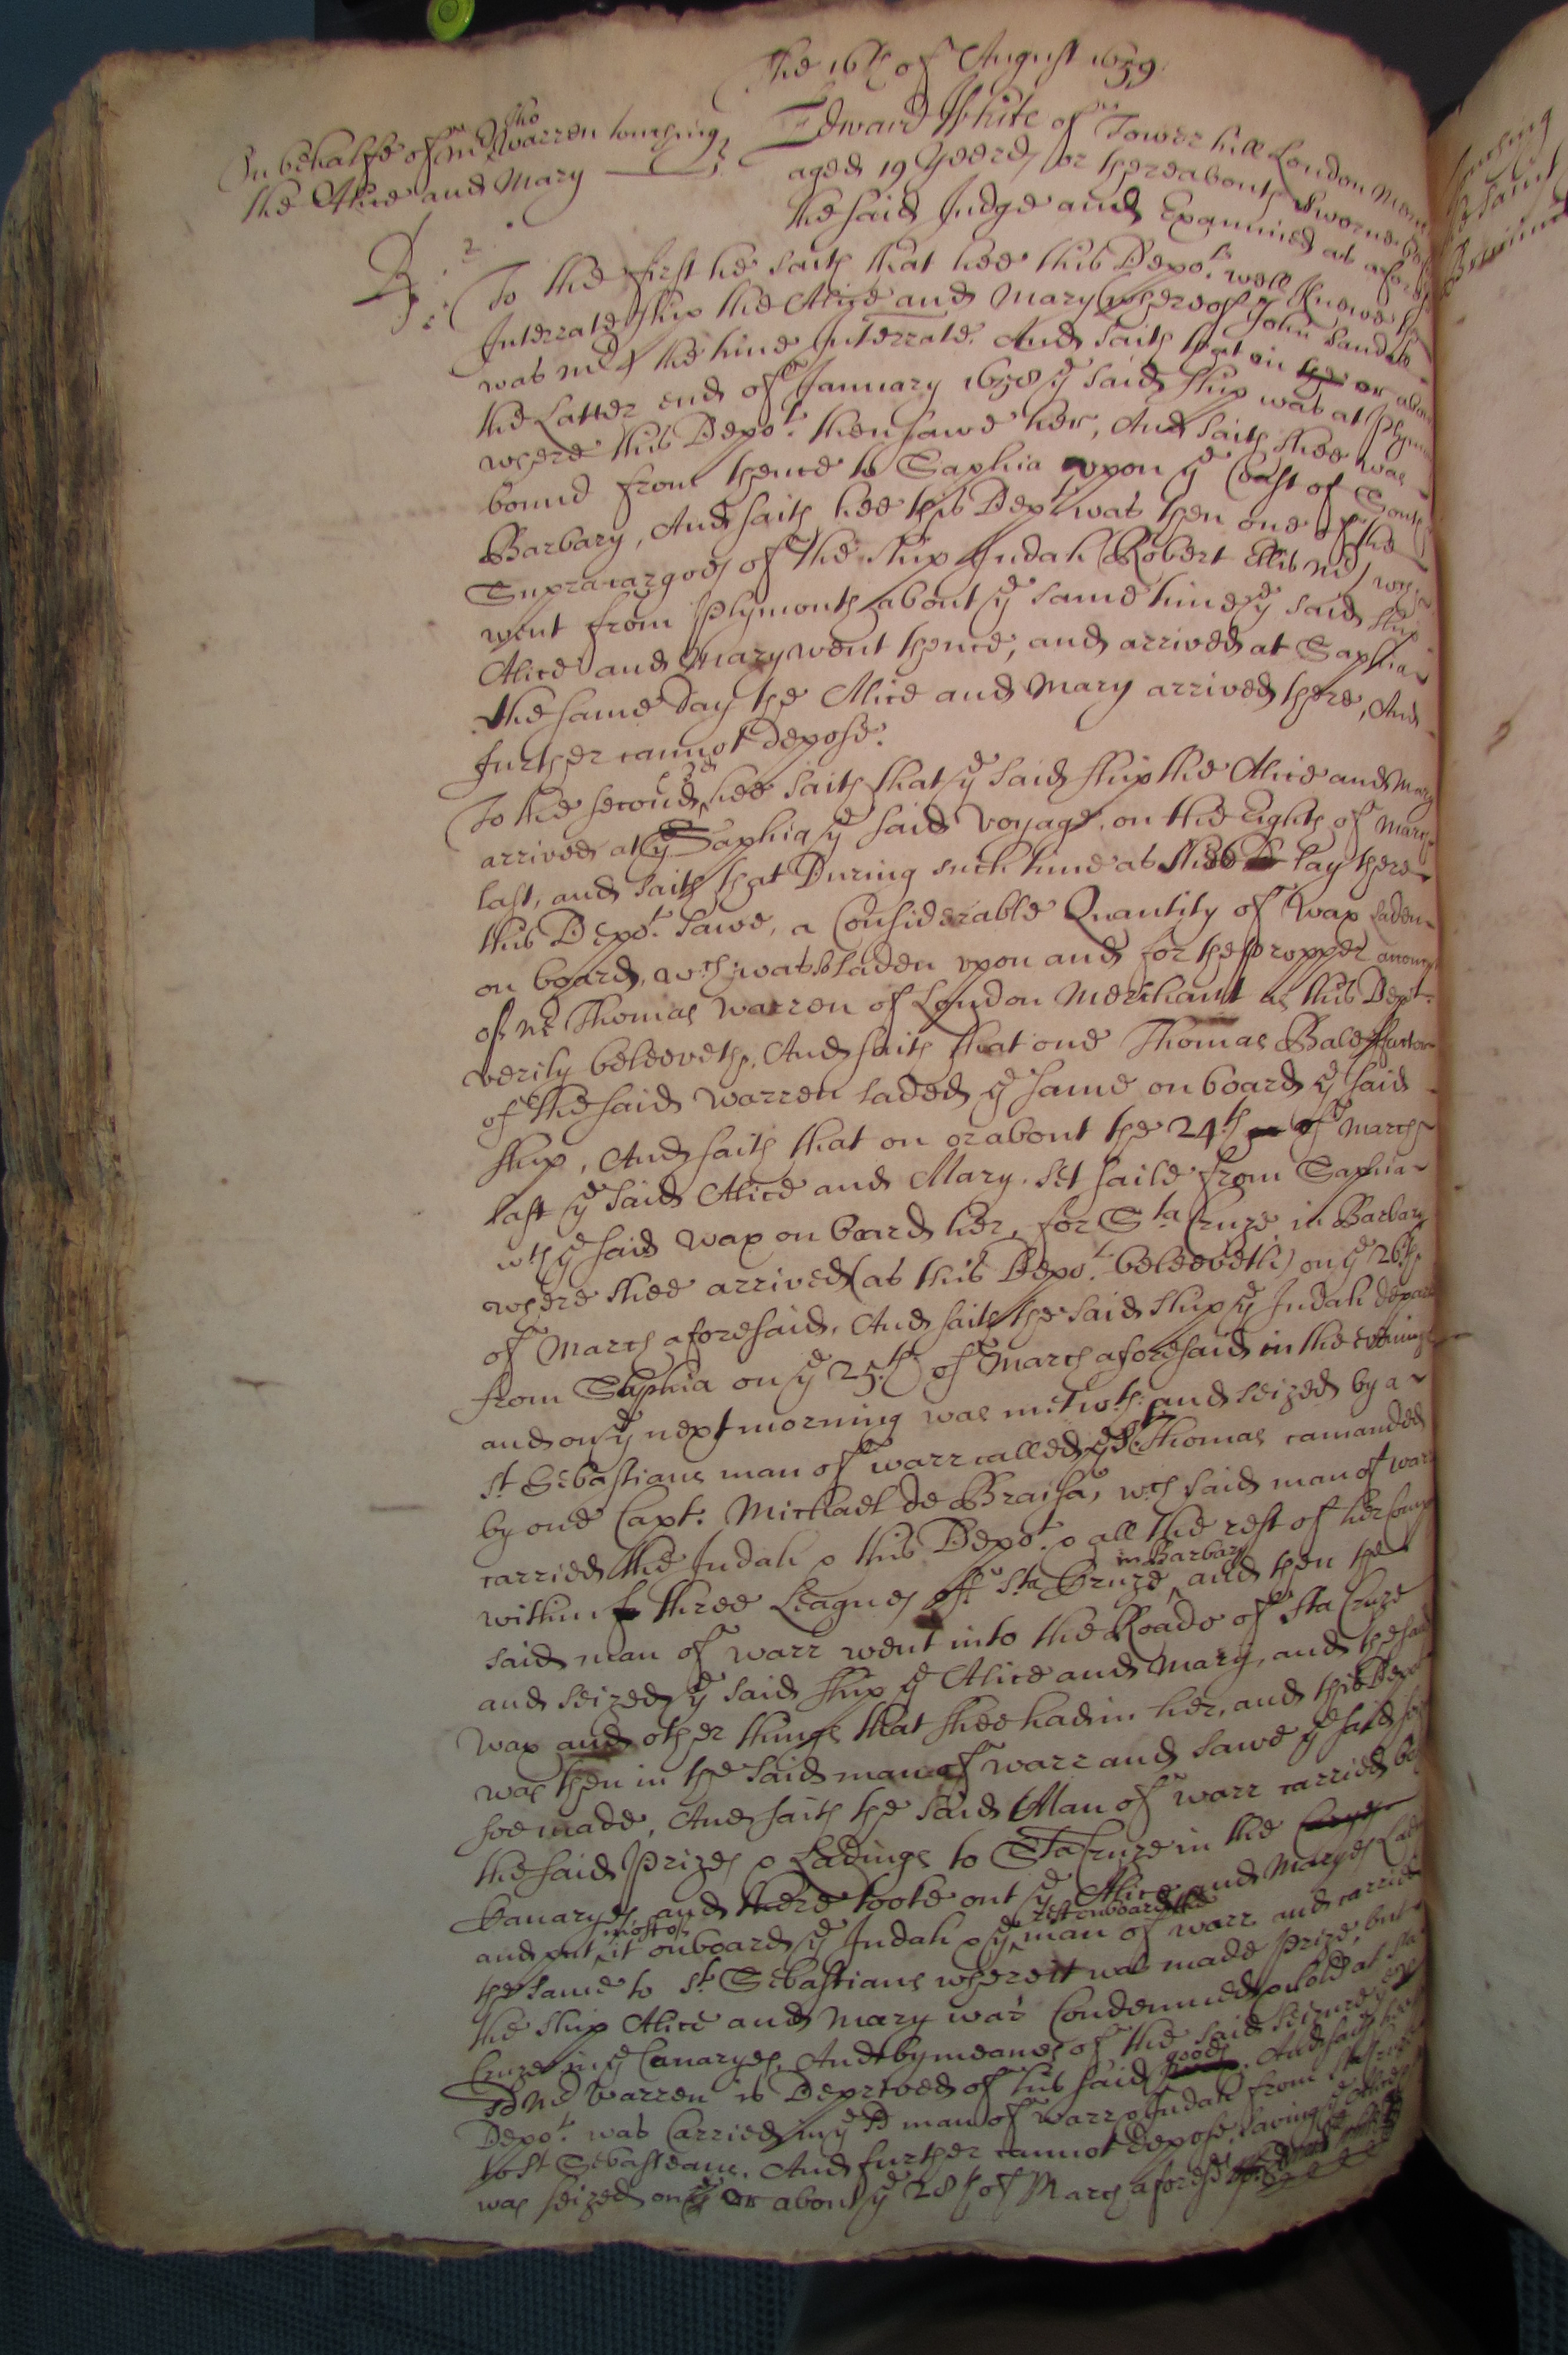 The 16th of August 1659.
In behalfe of mr Tho Warren touching
the Alice and Mary
Edward White of Tower hill London
aged 19 yeeres or thereabouts sworne
the said Judge and Examined as
2
To the first he saith that hee this Depot. well knowe
Interrate ship the Alice and Mary (whereof John
was mr) the time Interrate. And saith that in the or
the Latter end of January 1658 ye said ship was at
where this Depot. then sawe her, And saith shee was
bound from thence to Saphia upon ye Coast of South
Barbary, And saith hee this Depot was then one of the
Supracargoes of the ship Judah (Robert Ellis mr) wch
went from Plymouth about ye same time ye said ship
Alice and Mary went thence, and arrived at Saphia
the same day the Alice and Mary arrived there, And
further cannot depose.
To the second hee saith that ye said ship the Alice and Mary
arrived at ye Saphia ye said voyage, on the Eighth of March
last, and saith that During such time as shee lay there
this Depot. sawe, a Considerable Quantity of wax laden
on board, wch was soe laden upon and for the propper
of mr Thomas Warren of London Merchant as this Depot.
verily beleeveth, And saith that one Thomas Bale factor
of the said Warren laded ye same on board ye said
ship, And saith that on or about the 24th of March
last ye said Alice and Mary set saile from Saphia
wth ye said wax on board her, for Sta Cruze in Barbary
where shee arrived (as this Depot. beleeveth) on ye 26th
of March aforesaid, And saith the said ship ye Judah
from Saphia on ye 25th of March aforesaid in the evening
and on ye next morning was met wth and seized by a
St Sebastians man of warr called ye St Thomas comanded
by one Capt. Michael de Braisa, wch said man of warr
carried the Judah & this Depot. & all the rest of her
within three Leagues of Sta Cruze in Barbary and then the
said man of warr went into the Roade of Sta Cruze
and seized ye said ship ye Alice and Mary, and the said
wax and other things that shee had in her, and this Depot
was then in the said man of warr and sawe ye said
soe made, And saith the said Man of warr carried
the said Prizes & Ladings to Sta Cruze in the
Canaryes and there tooke out ye Alice and Maryes
and put most of it onboard ye Judah & ye rest onboard the man of warr and carried
the same to St Sebastians where it was made prize, but
the ship Alice and Mary was Condemned & sold at Sta
Cruze in ye Canaryes, And by meanes of the said seizure
sd mr Warren is Deprived of his said goods. And saith
Depot. was Carried in ye sd man of warr & Judah from
to St Sebasteans. And further cannot depose, saving
was seized on ye or about ye 28th of March aforesd